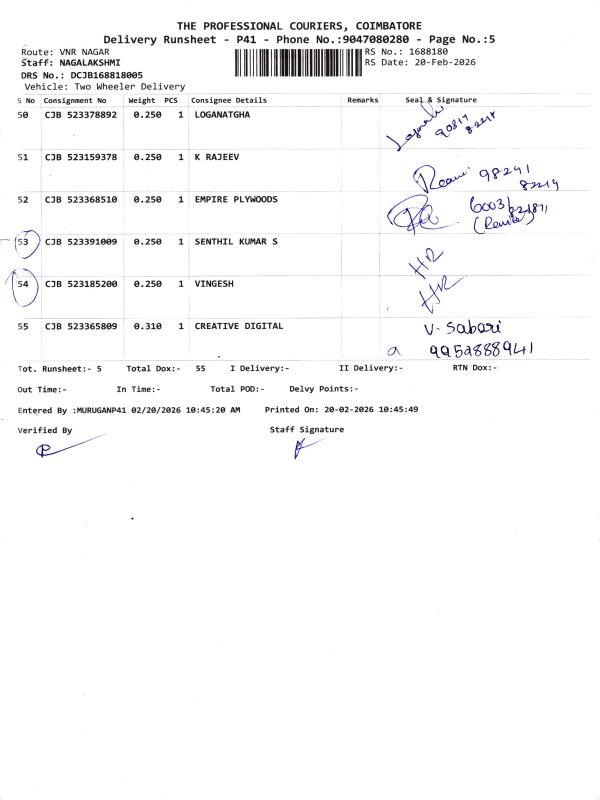 THE PROFESSIONAL COURIERS, COIMBATORE
Delivery Runsheet - P41 - Phone No.:9047080280 - Page No.:5
Route: VNR NAGAR RS No.: 1688180
Staff: NAGALAKSHMI RS Date: 20-Feb-2026
DRS No.: DCJB168818005
Vehicle: Two Wheeler Delivery
S No Consignment No Weight PCS Consignee Details Remarks Seal & Signature
50 CJB 523378892 0.250 1 LOGANATGHA
51 CJB 523159378 0.250 1 K RAJEEV 98241
82219
52 CJB 523368510 0.250 1 EMPIRE PLYWOODS
53 CJB 523391009 0.250 1 SENTHIL KUMAR S HR
54 CJB 523185200 0.250 1 VINGESH HR
55 CJB 523365809 0.310 1 CREATIVE DIGITAL V. Sabari
9952888941
Tot. Runsheet:- 5 Total Dox:- 55 I Delivery:- II Delivery:- RTN Dox:-
Out Time:- In Time:- Total POD:- Delvy Points:-
Entered By :MURUGANP41 02/20/2026 10:45:20 AM Printed On: 20-02-2026 10:45:49
Verified By Staff Signature